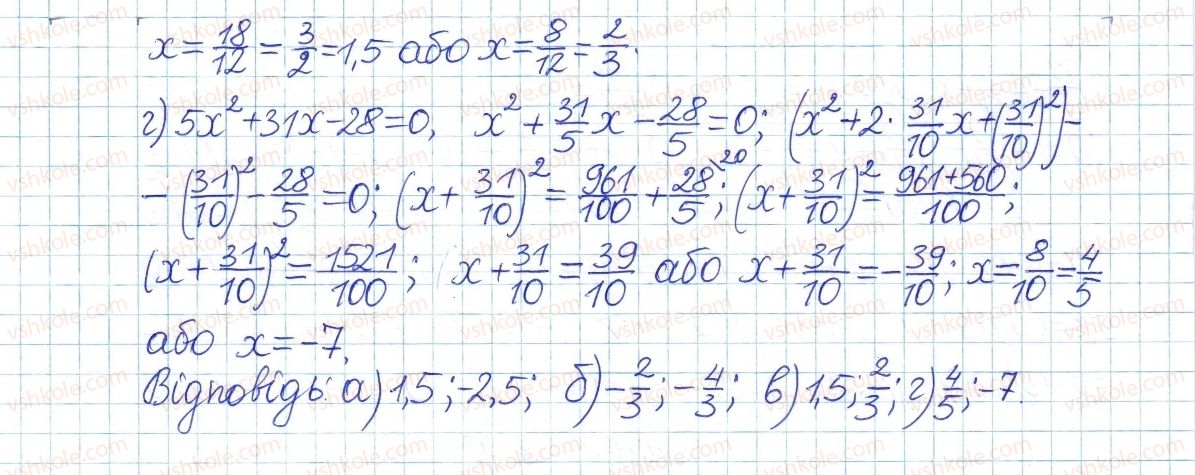 x = 18/12 = 3/2 = 1,5 або x = 8/12 = 2/3.
г) 5x² + 31x - 28 = 0, x² + 31/5 x - 28/5 = 0; (x² + 2 · 31/10 x + (31/10)²) -
- (31/10)² - 28/5 = 0; (x + 31/10)² = 961/100 + 28/5 \20 ; (x + 31/10)² = 961+560/100 ;
(x + 31/10)² = 1521/100 ; x + 31/10 = 39/10 або x + 31/10 = - 39/10 ; x = 8/10 = 4/5
або x = -7.
Відповідь: а) 1,5; -2,5; б) - 2/3 ; - 4/3 ; в) 1,5; 2/3 ; г) 4/5 ; -7.